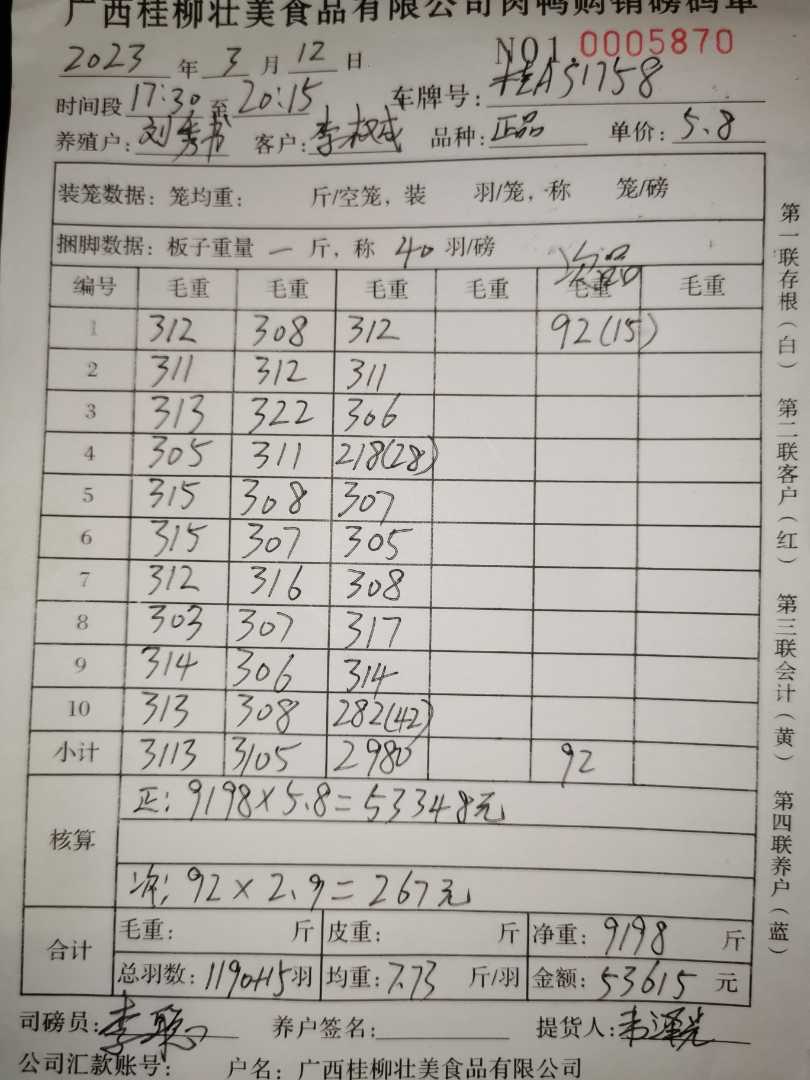 广西桂柳壮美食品有限公司肉鸭购销磅码单
NO1.0005870
2023 年 3 月 12 日
时间段 17:30 至 20:15 车牌号: 桂A51758
养殖户: 刘秀书 客户: 李权成 品种: 正品 单价: 5.8
装笼数据: 笼均重: 斤/空笼, 装 羽/笼, 称 笼/磅
捆脚数据: 板子重量 一 斤, 称 40 羽/磅
次品
编号 毛重 毛重 毛重 毛重 毛重 毛重
1 312 308 312 92(15)
2 311 312 311
3 313 322 306
4 305 311 218(28)
5 315 308 307
6 315 307 305
7 312 316 308
8 303 307 317
9 314 306 314
10 313 308 282(42)
小计 3113 3105 2980 92
核算 正: 9198×5.8=53348元
次: 92×2.9=267元
合计 毛重: 斤 皮重: 斤 净重: 9198 斤
总羽数: 1190+15 羽 均重: 7.73 斤/羽 金额: 53615 元
司磅员: 李 养户签名: 提货人: 韦
公司汇款账号: 户名: 广西桂柳壮美食品有限公司
第一联存根(白) 第二联客户(红) 第三联会计(黄) 第四联养户(蓝)